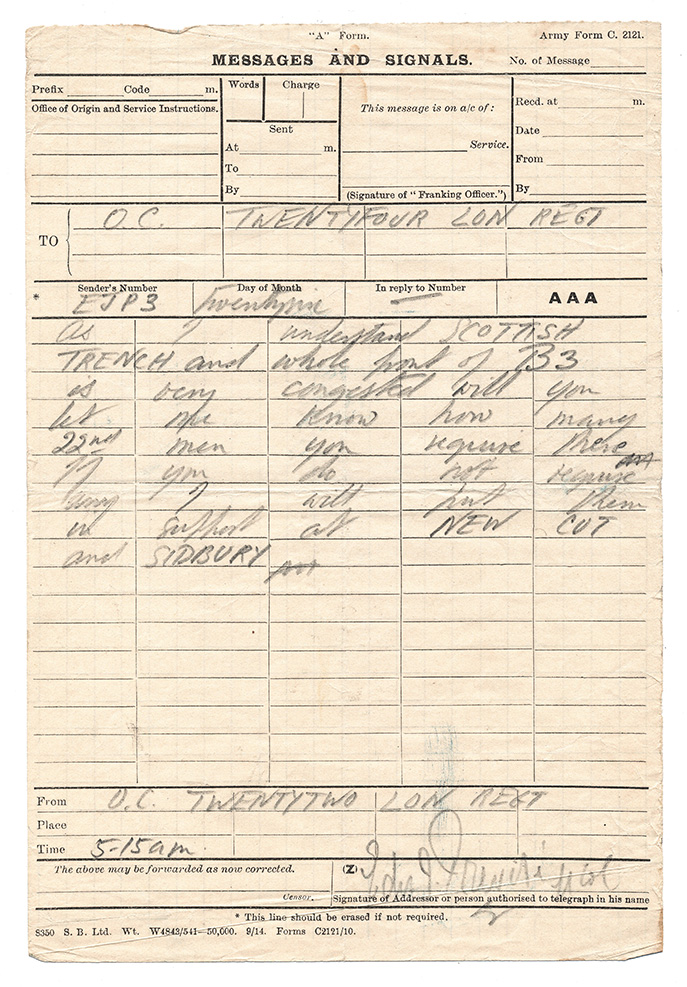 "A" Form.
Army Form C. 2121.
MESSAGES AND SIGNALS.
No. of Message
Prefix Code m.
Words Charge
This message is on a/c of:
Recd. at m.
Office of Origin and Service Instructions.
Sent
Date
At m.
Service.
From
To
By
(Signature of "Franking Officer.")
By
TO
O.C. TWENTYFOUR LON REGT
Sender's Number
Day of Month
In reply to Number
AAA
* EJP3 —
As I understand SCOTTISH
TRENCH and whole front of B3
is very congested will you
let me know how many
22nd men you require there
If you do not require
any I will put them
in support at NEW CUT
and SIDBURY
From O.C. TWENTYTWO LON REGT
Place
Time 5-15am.
The above may be forwarded as now corrected.
(Z)
Censor.
Signature of Addressor or person authorised to telegraph in his name
* This line should be erased if not required.
8350 S. B. Ltd. Wt. W4843/541—50,000. 9/14. Forms C2121/10.